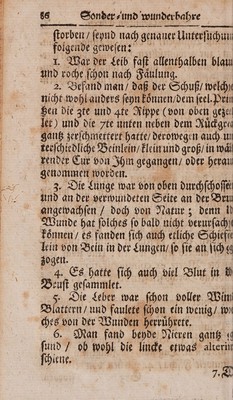 86 Sonder- und wunderbahre
storben / seynd nach genauer Untersuchun
folgende gewesen:
1. War der Leib fast allenthalben blau
und roche schon nach Fäulung.
2. Befand man / daß der Schuß / welch
nicht wohl anders seyn können / dem seel. Prin
tzen die 3te und 4te Rippe (von oben gezeh
let) und die 7te unten neben dem Rückgra
gantz zerschmettert hatte / derowegen auch un
terschiedliche Beinlein / klein und groß / in wäh
render Cur von Ihm gegangen / oder herau
genommen worden.
3. Die Lunge war von oben durchschossen
und an der verwundeten Seite an der Bru
angewachsen / doch von Natur; denn
Wunde hat solches so bald nicht verursach
können / es fanden sich auch etliche Schiefe
lein von Bein in der Lungen / so sie an sich ge
zogen.
4. Es hatte sich auch viel Blut in
Brust gesammlet.
5. Die Leber war schon voller Win
Blattern / und faulete schon ein wenig / we
ches von der Wunden herrührete.
6. Man fand beyde Nieren gantz g
sund / ob wohl die lincke etwas alterir
schiene.
7.